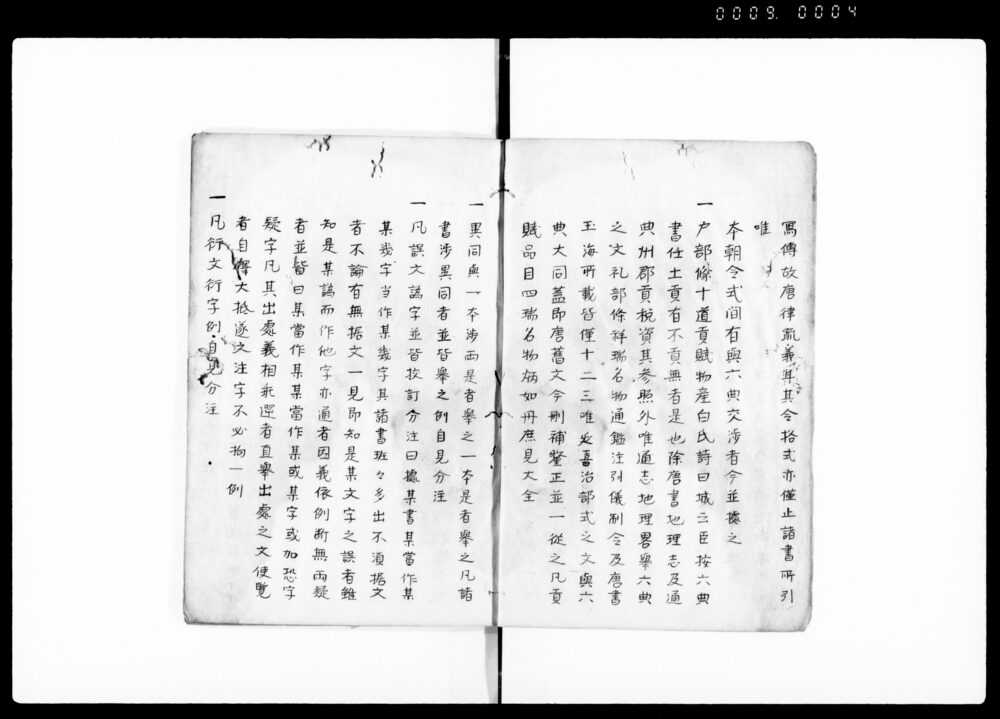 0009. 0004
寫傳故唐律疏義集其令格式亦僅止諸書所引
唯
本朝令式間有與六典交涉者今並據之
一戶部條十道貢賦物產白氏詩曰城云臣按六典
書任土貢有不貢無者是也除唐書地理志及通
典州郡貢稅資其參照外唯通志地理畧舉六典
之文礼部條祥瑞名物通鑑注引儀制令及唐書
玉海所載皆僅十二三唯延喜治部式之文與六
典大同蓋即唐舊文今刪補釐正並一從之凡貢
賦品目四瑞名物炳如丹庶見大全
一異同與一本涉兩是者舉之一本是者舉之凡諸
書涉異同者並皆舉之例自見分注
一凡誤文譌字並皆挍訂分注曰據某書某當作某
某幾字當作某幾字其諸書班々多出不須據文
者不論有無据文一見即知是某文字之誤者雖
知是某譌而作他字亦通者因義依例斷無兩疑
者並皆曰某當作某某當作某或某字或加恐字
疑字凡其出處義相乖選者直舉出處之文便覽
者自擇大抵遂文注字不必拘一例
一凡衍文衍字例自見分注